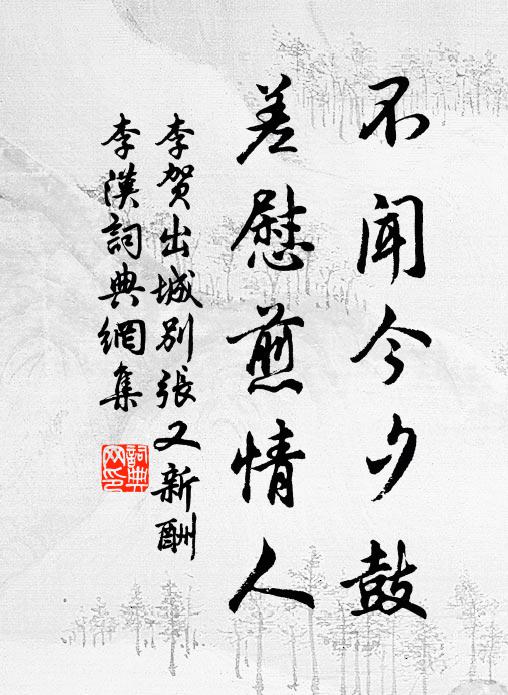 不闻今夕鼓
差慰煎情人
李贺出城别张又新酬
李漢詞典網集
詞典网印